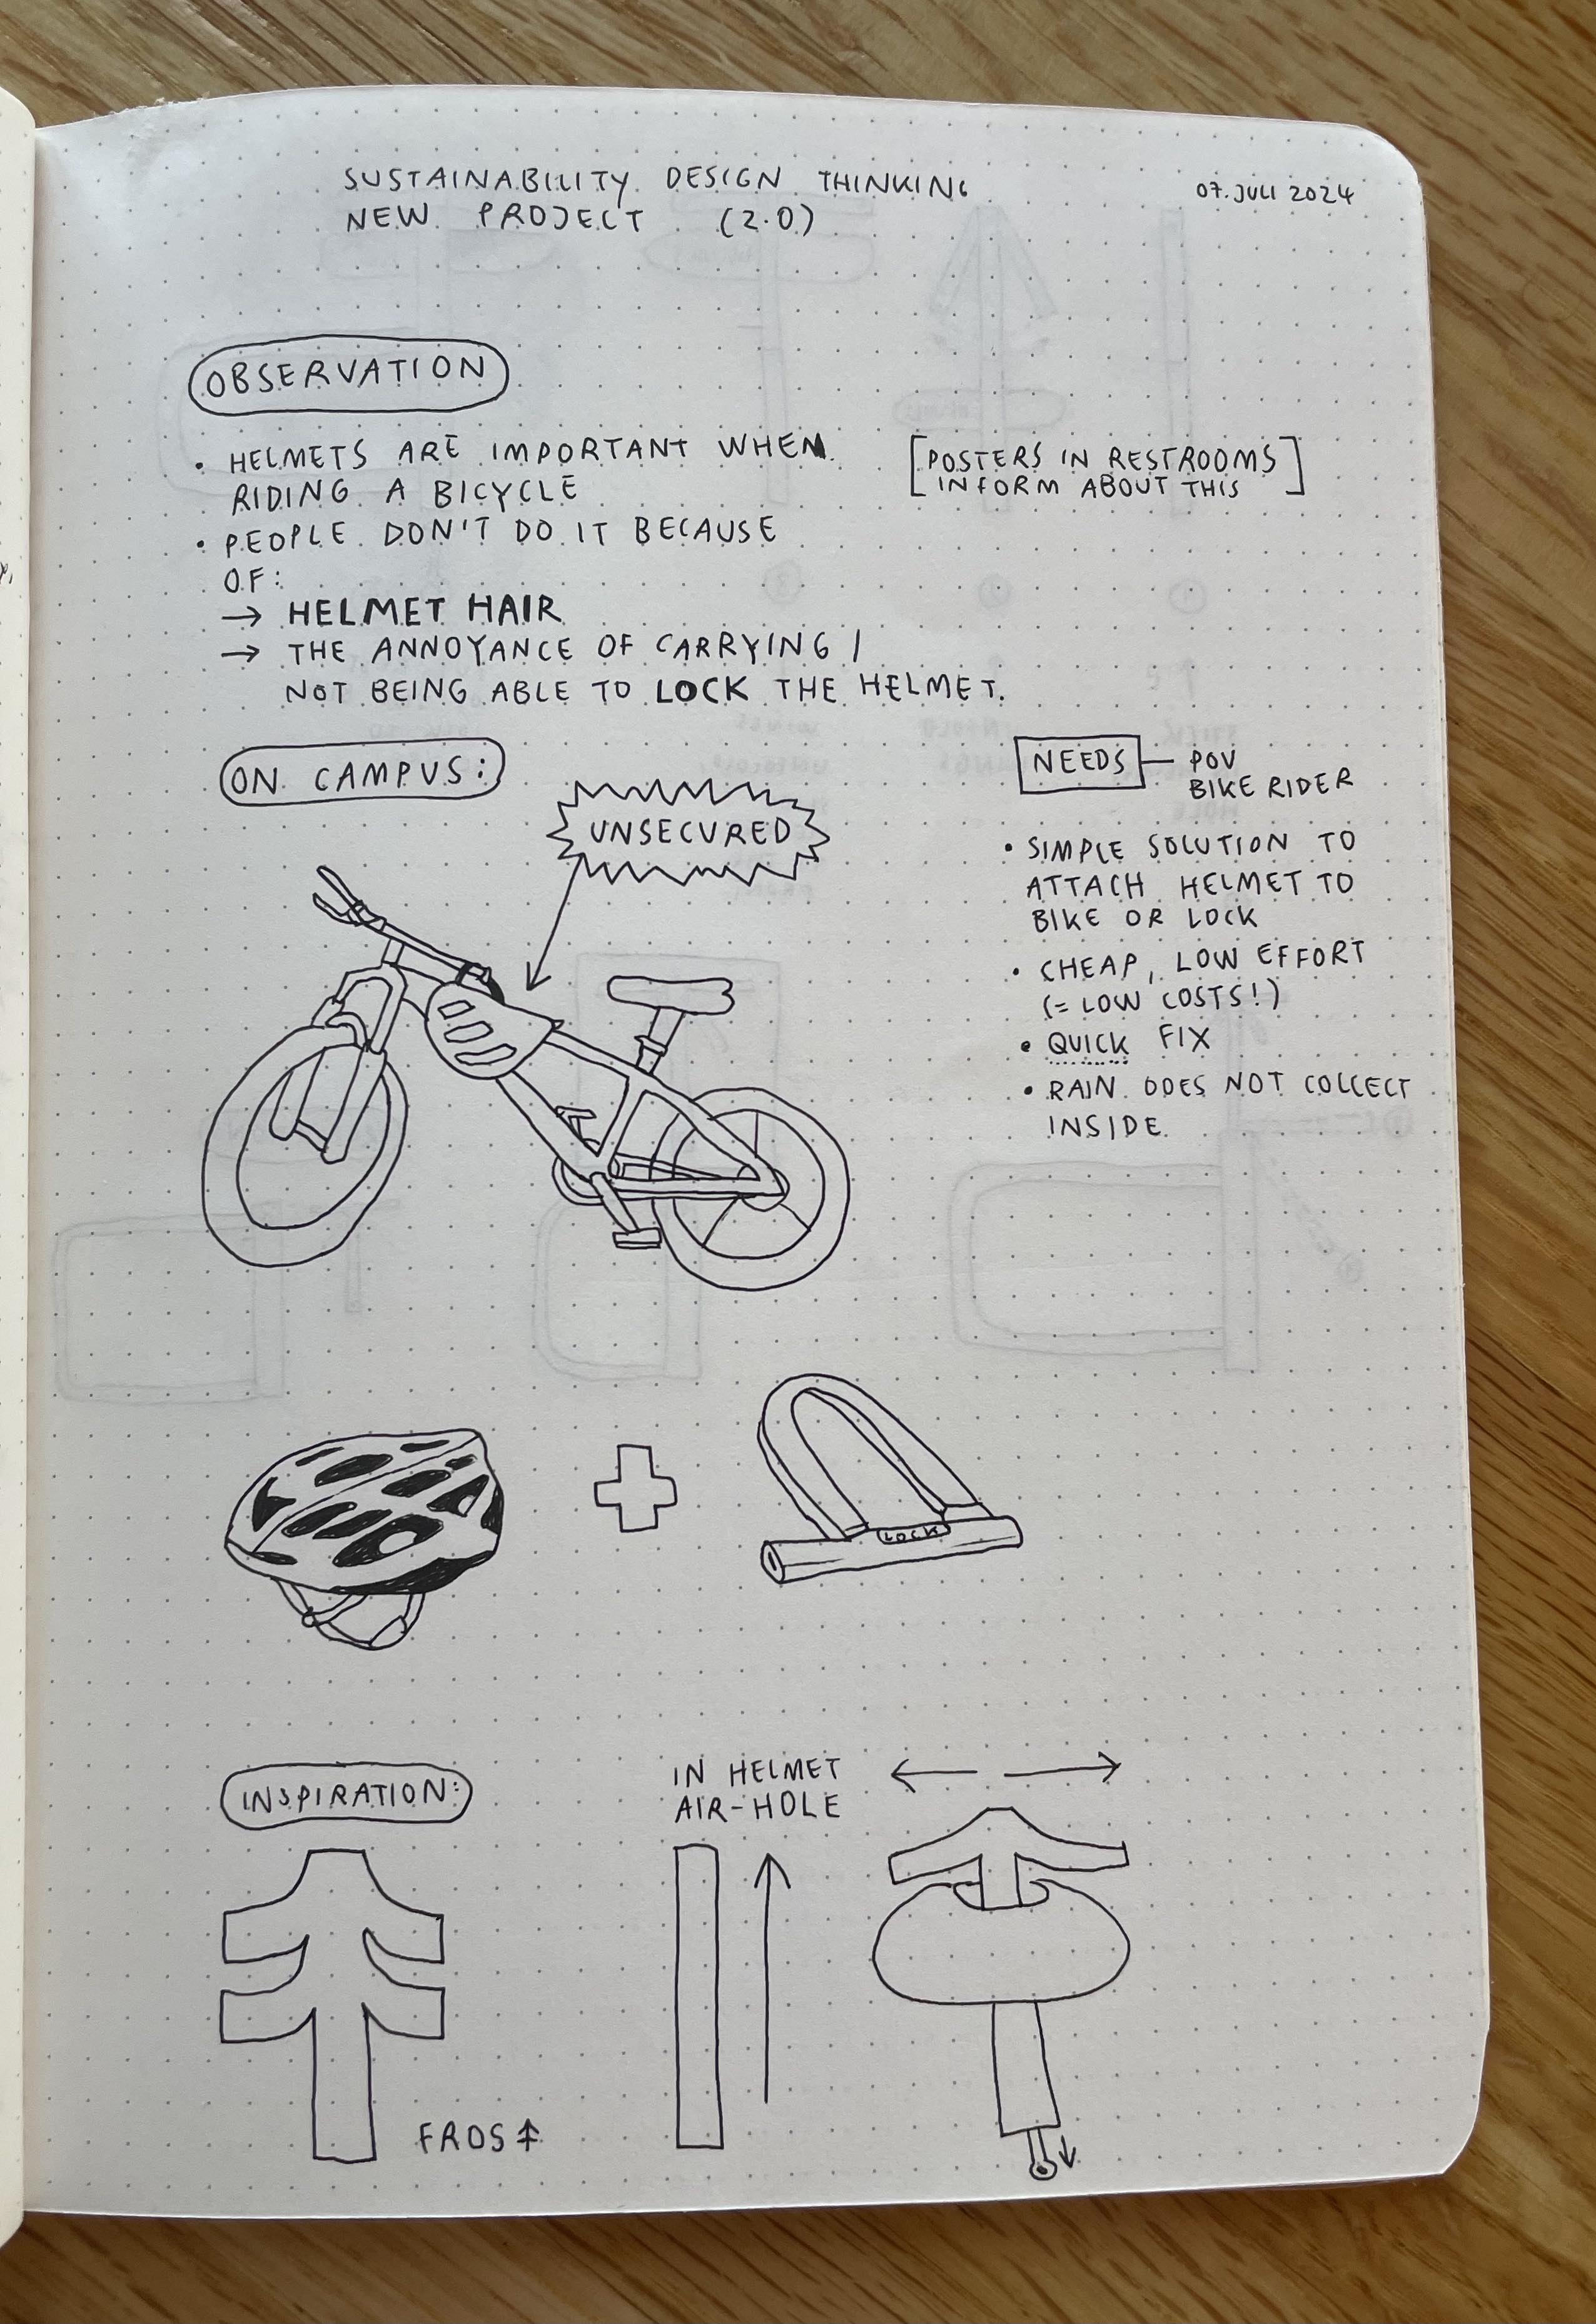 SUSTAINABILITY DESIGN THINKING
NEW PROJECT (2.0)
07. JULI 2024
OBSERVATION
• HELMETS ARE IMPORTANT WHEN
RIDING A BICYCLE
[POSTERS IN RESTROOMS
INFORM ABOUT THIS]
• PEOPLE DON'T DO IT BECAUSE
OF:
→ HELMET HAIR
→ THE ANNOYANCE OF CARRYING /
NOT BEING ABLE TO LOCK THE HELMET.
ON CAMPUS:
UNSECURED
NEEDS — POV
BIKE RIDER
• SIMPLE SOLUTION TO
ATTACH HELMET TO
BIKE OR LOCK
• CHEAP, LOW EFFORT
(= LOW COSTS!)
• QUICK FIX
• RAIN DOES NOT COLLECT
INSIDE
LOCK
INSPIRATION:
IN HELMET
AIR-HOLE
FROS